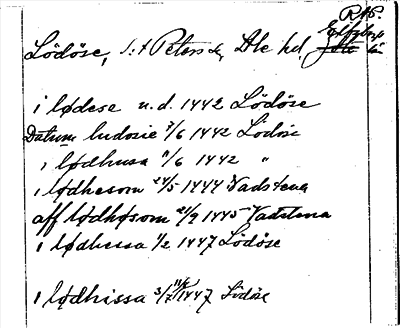 RAP.
Lödöse, S:t Peters sn, Ale hd, Elfsborgs län
i lødese u.d. 1442 Lödöse
Datum ludosie 7/6 1442 Lödöse
i lødhusa 11/6 1442 "
i lødhesom 24/5 1444 Vadstena
aff lødhøsom 21/9 1445 Vadstena
i lødhessa 1/2 1447 Lödöse
i lødhissa 3/7 1447 Lödöse